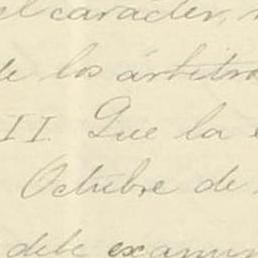 el carácter,
de los árbitro
II. Que la
Octubre de
debe examin